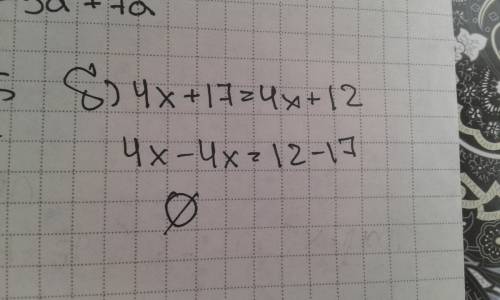 5a + 7a
б) 4x + 17 = 4x + 12
4x - 4x = 12 - 17
∅